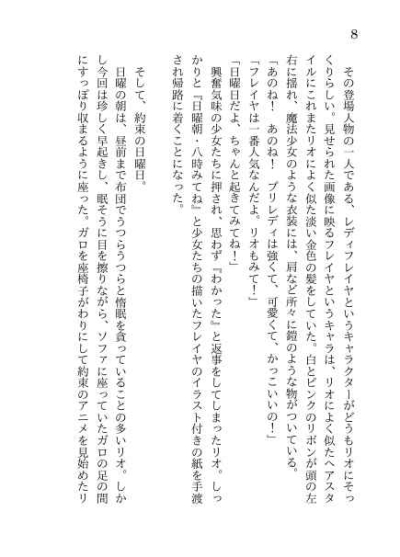 8
その登場人物の一人である、レディフレイヤというキャラクターがどうもリオにそっ
くりらしい。見せられた画像に映るフレイヤというキャラは、リオによく似たヘアスタ
イルにこれまたリオによく似た淡い金色の髪をしていた。白とピンクのリボンが頭の左
右に揺れ、魔法少女のような衣装には、肩など所々に鎧のような物がついている。
「あのね！　あのね！　プリレディは強くて、可愛くて、かっこいいの！」
「フレイヤは一番人気なんだよ。リオもみて！」
「日曜日だよ、ちゃんと起きてみてね！」
興奮気味の少女たちに押され、思わず『わかった』と返事をしてしまったリオ。しっ
かりと『日曜朝・八時みてね』と少女たちの描いたフレイヤのイラスト付きの紙を手渡
され帰路に着くことになった。
そして、約束の日曜日。
日曜の朝は、昼前まで布団でうつらうつらと惰眠を貪っていることの多いリオ。しか
し今回は珍しく早起きし、眠そうに目を擦りながら、ソファに座っていたガロの足の間
にすっぽり収まるように座った。ガロを座椅子がわりにして約束のアニメを見始めたリ